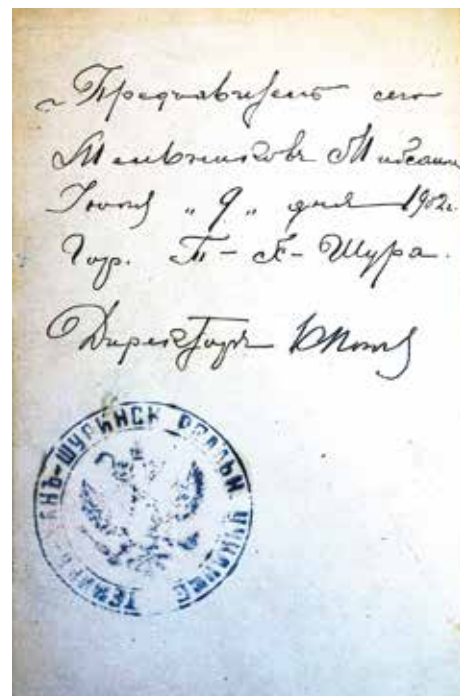 Предъявитель сего
Мельниковъ Михаилъ
Июня „ 9 „ дня 1902г.
Гор. Т-Х-Шура.
Директоръ
ТЕМИРЪ-ХАНЪ-ШУРИНСК РЕАЛЬН УЧИЛИЩЕ